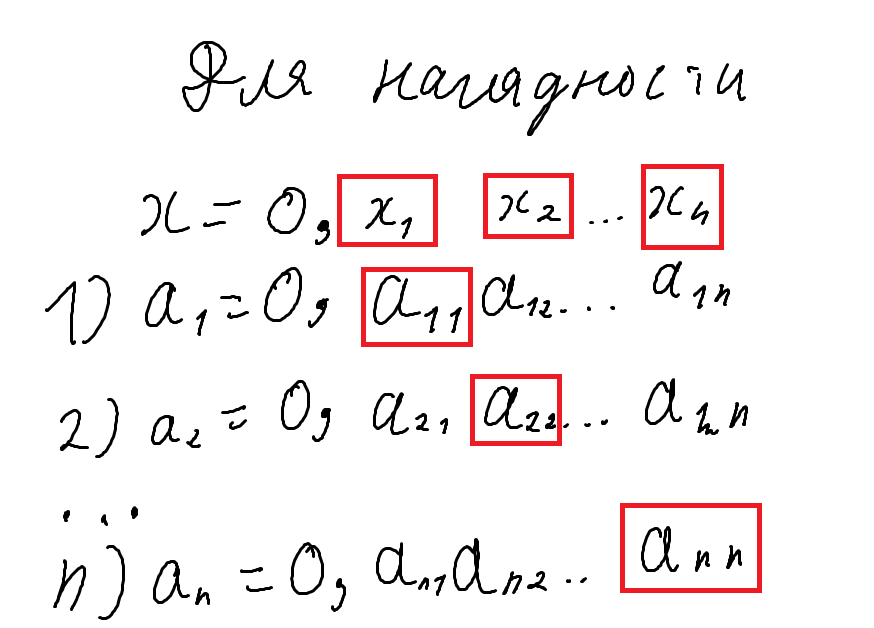 Для наглядности
x = 0, x₁ x₂ ... xₙ
1) a₁ = 0, a₁₁ a₁₂ ... a₁ₙ
2) a₂ = 0, a₂₁ a₂₂ ... a₂ₙ
...
n) aₙ = 0, aₙ₁ aₙ₂ .. aₙₙ